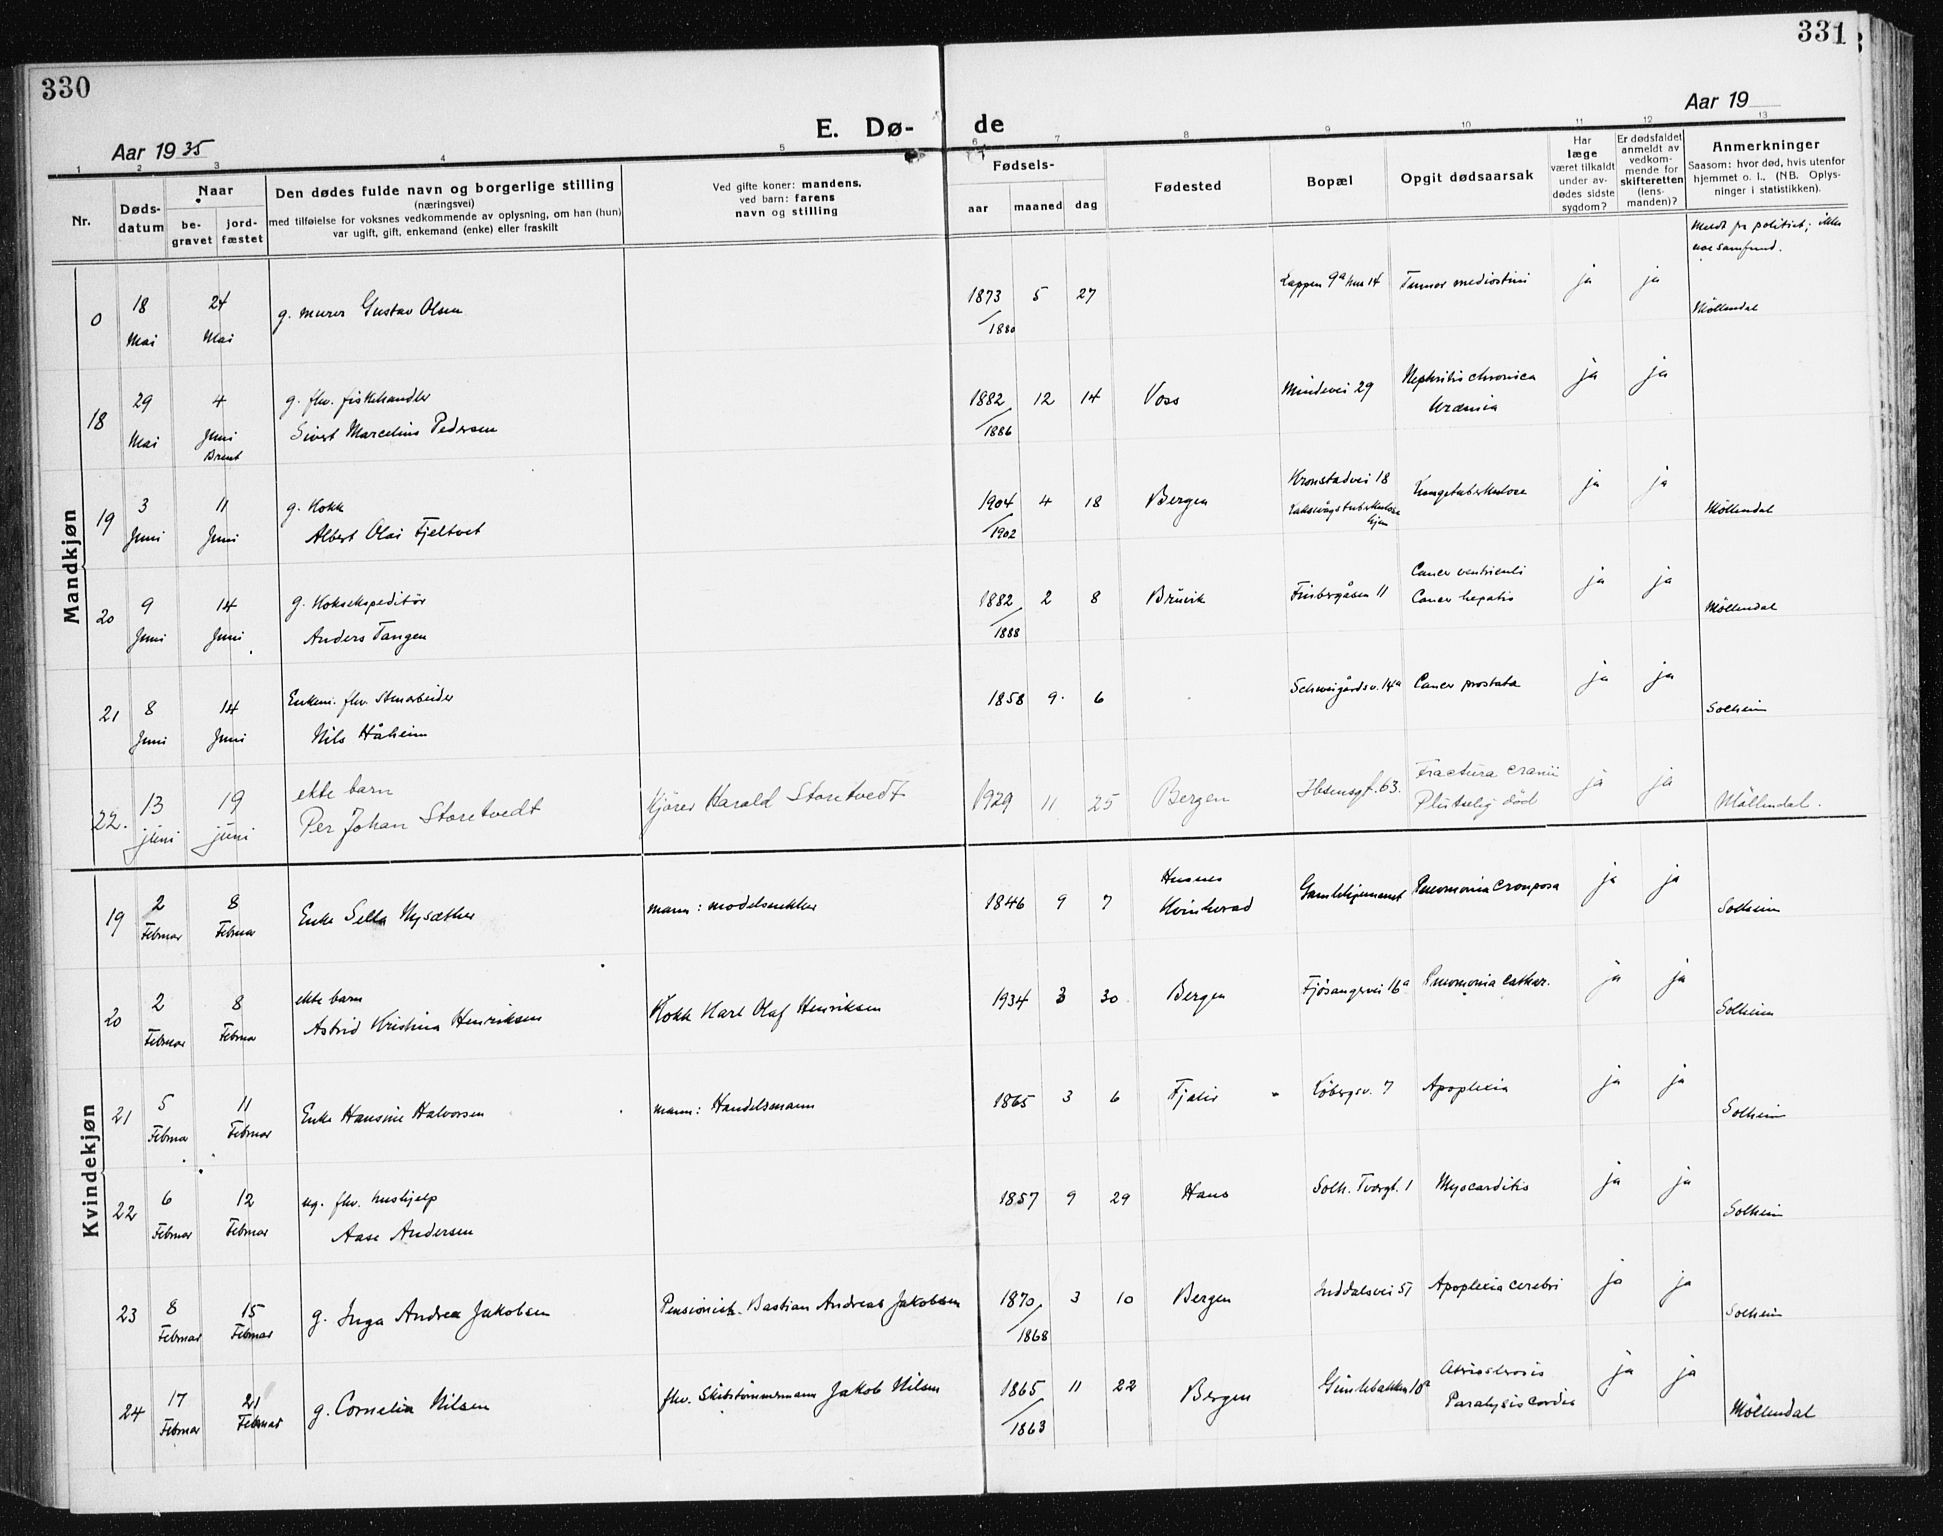 330
331
Aar 1935
E. Dø-
de
Aar 19
1 2 3 4 5 6 7 8 9 10 11 12 13
Nr.
Døds-
datum
Naar
be-
gravet
jord-
fæstet
Den dødes fulde navn og borgerlige stilling
(næringsvei)
med tilføielse for voksnes vedkommende av oplysning, om han (hun)
var ugift, gift, enkemand (enke) eller fraskilt
Ved gifte koner: mandens,
ved barn: farens
navn og stilling
Fødsels-
aar maaned dag
Fødested
Bopæl
Opgit dødsaarsak
Har
læge
været tilkaldt
under av-
dødes sidste
sygdom?
Er dødsfaldet
anmeldt av
vedkom-
mende for
skifteretten
(lens-
manden)?
Anmerkninger
Saasom: hvor død, hvis utenfor
hjemmet o. l., (NB. Oplys-
ninger i statistikken).
Mandkjøn
Meldt fra politiet; ikke
noe samfund.
0 18 Mai 24 Mai g. murer Gustav Olsen 1873/1880 5 27 Lappen 9a hus 14 Tumor mediastini ja ja Möllendal
18 29 Mai 4 Juni Brent g. fhv. fiskehandler
Sivert Marcelius Pedersen 1882/1886 12 14 Voss Mindevei 29 Nephritis chronica
Uræmia ja ja
19 3 Juni 11 Juni g. Kokk
Albert Olai Fjeltvet 1904/1902 4 18 Bergen Kronstadvei 18
Laksevåg tuberkulose
hjem Lungetuberkulose ja ja Möllendal
20 9 Juni 14 Juni g. Koksekspeditör
Anders Tangen 1882/1888 2 8 Brüvik Finbergåsen 11 Cancer ventriculi
Cancer hepatis ja ja Möllendal
21 8 Juni 14 Juni Enkem. fhv. Stenarbeider
Nils Håheim 1858 9 6 Schweigårdsv. 14a Cancer prostata ja ja Solheim
22. 13 juni 19 juni ekte barn
Per Johan Storetvedt Kjörer Harald Storetvedt 1929 11 25 Bergen Ibsensgt. 63. Fractura cranii
Plutselig död ja ja Möllendal.
Kvindekjøn
19 2 Februar 8 Februar Enke Sella Nysæther mann: modelsnekker 1846 9 7 Husnes
Kvinherad Gamlehjemmet Pneumonia crouposa ja ja Solheim
20 2 Februar 8 Februar ekte barn
Astrid Kristina Henriksen Kokk Karl Olaf Henriksen 1934 3 30 Bergen Fjösangervei 16a Pneumonia cathar. ja ja Solheim
21 5 Februar 11 Februar Enke Hansine Halvorsen mann: Handelsmann 1865 3 6 Fjaler Löbergsv. 7 Apoplexia ja ja Solheim
22 6 Februar 12 Februar ug. fhv. hushjelp
Aase Andersen 1857 9 29 Haus Solh. Tvergt. 1 Myocarditis ja ja Solheim
23 8 Februar 15 Februar g. Inga Andrea Jakobsen Pensionist. Bastian Andreas Jakobsen 1870/1868 3 10 Bergen Inddalsvei 51 Apoplexia cerebri ja ja Solheim
24 17 Februar 21 Februar g. Cornelia Nilsen fhv. Skibstömmermann Jakob Nilsen 1865/1863 11 22 Bergen Gimlebakken 10a Paralysis cordis ja ja Möllendal